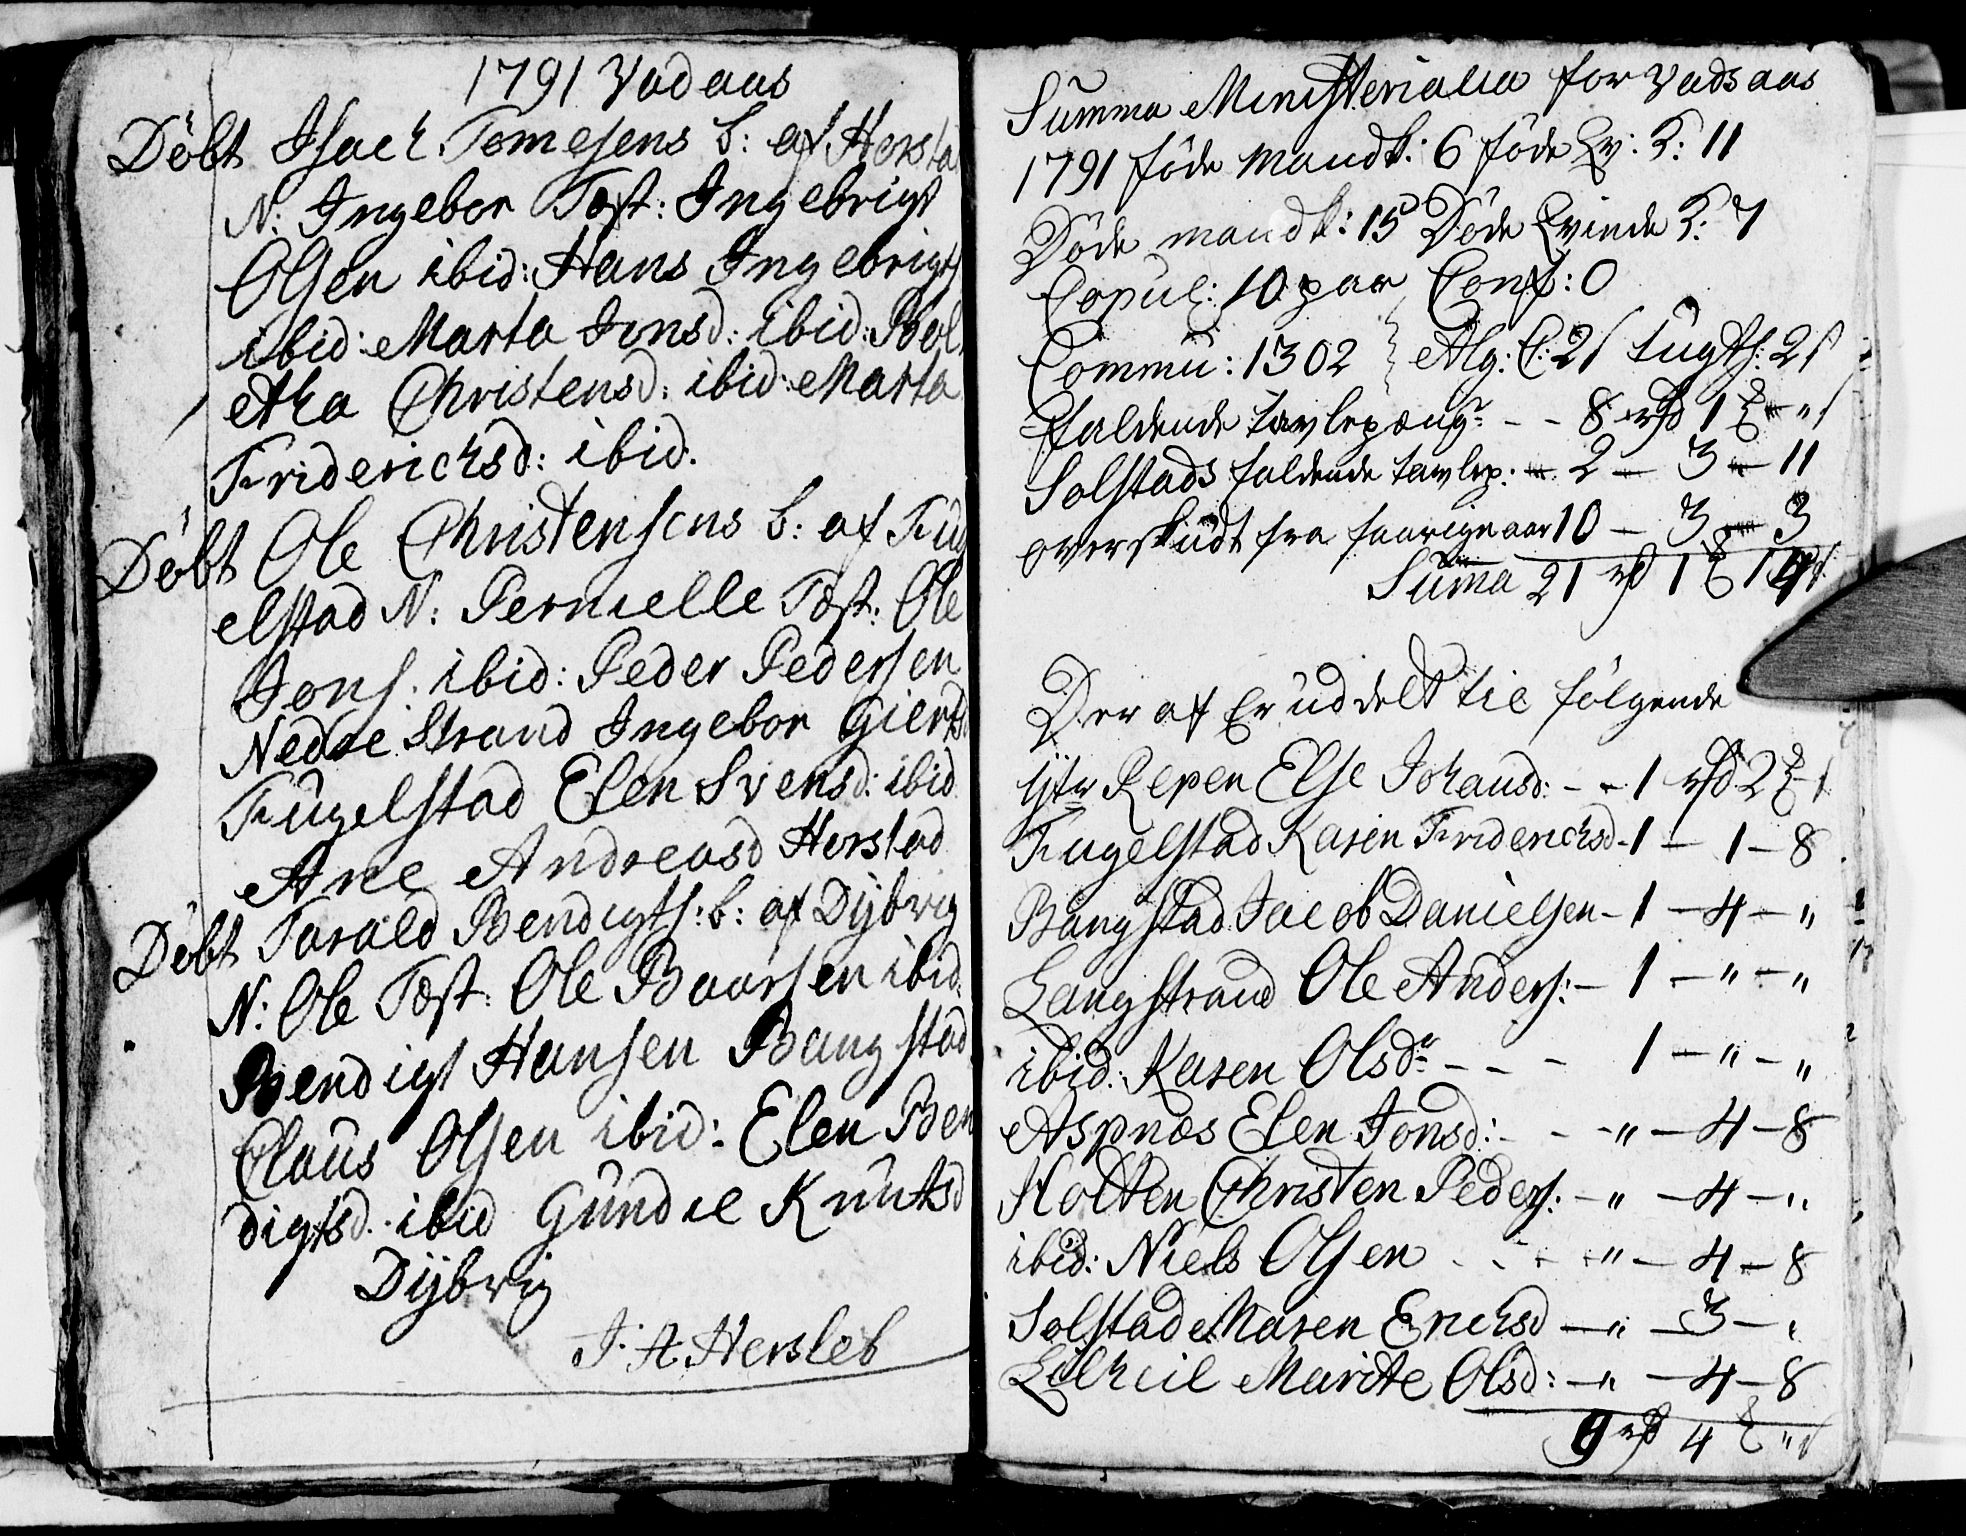 1791 Vadaas
Döbt Isach Tomesens b: af Horsta
N: Ingebor Tæst: Ingebrigt
Olsen ibid: Hans Ingebrigts
ibid: Marta Jonsd: ibid: Bol
etha Christensd: ibid: Marta
Friderichsd: ibid.
Döbt Ole Christensens b: af Fug
elstad N: Pernielle Tæst: Ole
Jons: ibid: Peder Pedersen
Nedre Strand Ingebor Giertsd
Fugelstad Elen Svensd: ibid
Ane Andreasd Horstad
Döbt Tarald Bendigts: b: af Dÿbvig
N: Ole Tæst: Ole Baarsen ibid.
Bendigt Hansen Bangstad
Claus Olsen ibid: Elen Ben
digtsd. ibid Gundil Knutsd
Dÿbvig
J: A Hersleb
Summa Ministerialia for Vadsaas
1791 föde Mandk: 6 föde Qv: K: 11
Döde mandk: 15 Döde Qvinde K: 7
Copul: 10 par Conf: 0
Commu: 1302 Alg: C: 2 s Tugths: 2 s
Faldende tavlepæng - - 8 rd 1 " s
Solstads faldende tavlep: - 2 - 3 - 11
overskudt fra forrige aar 10 - 3 - 3
Summa 21 rd 1 14 s
Der af Er uddelt til følgende
Ytr Repen Else Johansd: - - 1 rd 2
Fugelstad Karen Friderichsd - 1 - 1 - 8
Bangstad Jacob Danielsen - 1 - 4 - "
Langstrand Ole Anders: - 1 - " - "
ibid: Karen Olsdr - - - 1 - " - "
Aspnæs Elen Jonsd: - - - " - 4 - 8
Holten Christen Peders: - " - 4 - "
ibid: Niels Olsen - - - " - 4 - 8
Solstad Maren Erichsd - " - 3 - "
Marite Olsd: - " - 4 - 8
9 rd 4 " s